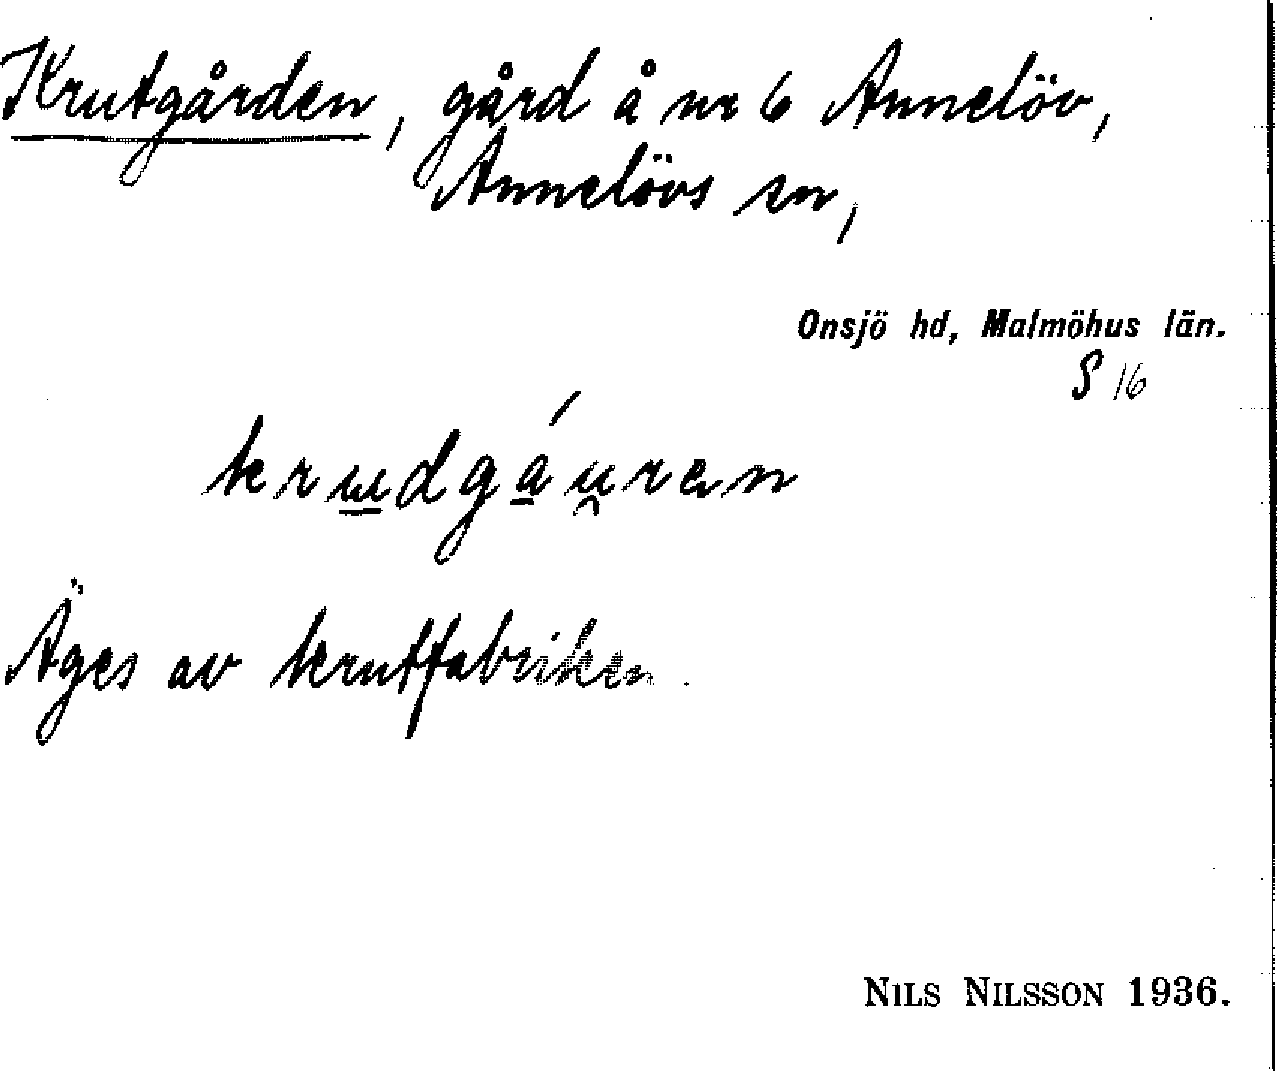 Krutgården, gård å nr 6 Annelöv,
Annelövs sn,
Onsjö hd, Malmöhus län.
S 16
krudgáu̯ran
Äges av krutfabriken.
NILS NILSSON 1936.